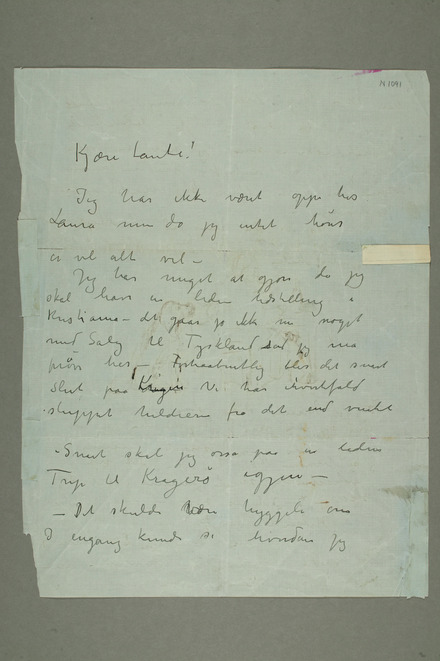 N 1091
Kjære Tante!
Jeg har ikke været oppe hos
Laura men da jeg intet hører
er vel alt vel –
Jeg har meget at gjøre da jeg
skal have en liden Udstilling i
Kristiania – det gaar jo ikke nu noget
med Salg til Tyskland saa jeg maa
prøve her –      blir det snart
Slut paa Krigen Vi har ihvertfald
sluppet heldigere fra det end ventet
– Snart skal jeg ogsaa paa en liden
Trip til Kragerø igjen –
– Det skulde være hyggeligt om
I engang kunde se hvordan jeg